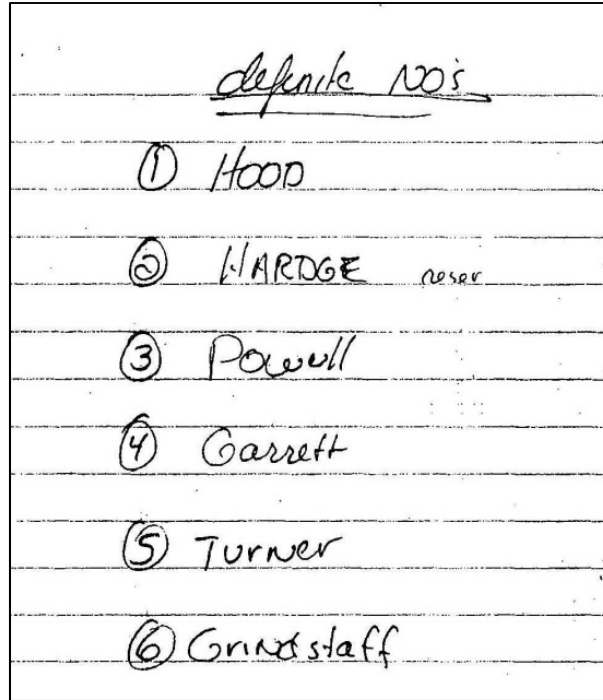 definite NO's
① HOOD
② HARDGE
③ Powell
④ Garrett
⑤ Turner
⑥ Grindstaff